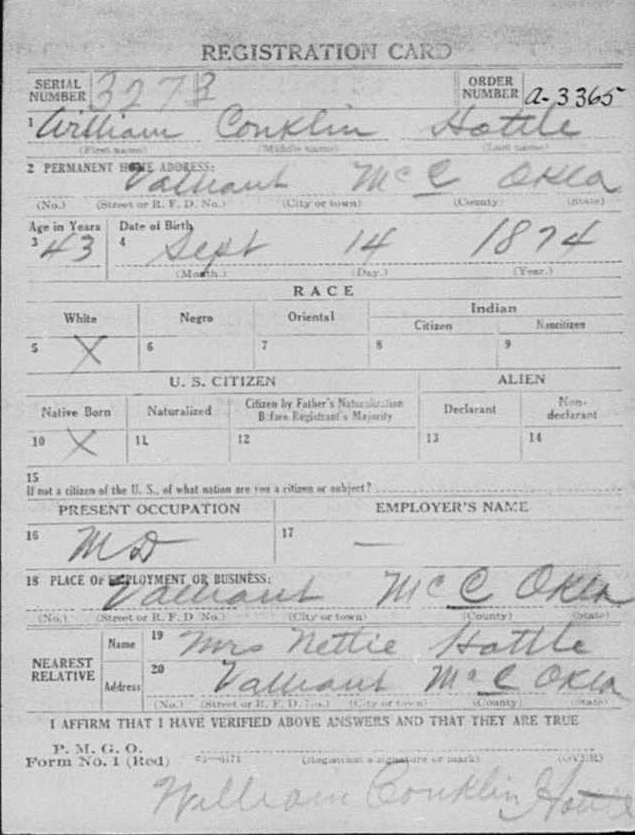 REGISTRATION CARD
SERIAL NUMBER 3273 ORDER NUMBER A-3365
1 William Conklin Hottle
(First name) (Middle name) (Last name)
2 PERMANENT HOME ADDRESS:
Valliant McC Okla
(No.) (Street or R. F. D. No.) (City or town) (County) (State)
Age in Years Date of Birth
3 43 4 Sept 14 1874
(Month.) (Day.) (Year.)
RACE
White Negro Oriental Indian
Citizen Noncitizen
5 X 6 7 8 9
U. S. CITIZEN ALIEN
Native Born Naturalized Citizen by Father's Naturalization Before Registrant's Majority Declarant Non-declarant
10 X 11 12 13 14
15
If not a citizen of the U. S., of what nation are you a citizen or subject?
PRESENT OCCUPATION EMPLOYER'S NAME
16 MD 17 —
18 PLACE OF EMPLOYMENT OR BUSINESS:
Valliant McC Okla
(No.) (Street or R. F. D. No.) (City or town) (County) (State)
NEAREST RELATIVE Name 19 Mrs Nettie Hottle
Address 20 Valliant McC Okla
(No.) (Street or R. F. D. No.) (City or town) (County) (State)
I AFFIRM THAT I HAVE VERIFIED ABOVE ANSWERS AND THAT THEY ARE TRUE
P. M. G. O.
Form No. 1 (Red) (Registrant's signature or mark) (OVER)
William Conklin Hottle